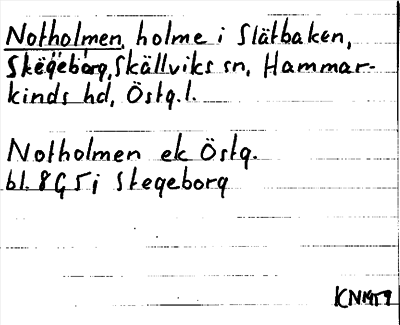 Notholmen, holme i Slätbaken,
Skegeborg, Skällviks sn, Hammar-
kinds hd, Östg.l.
Notholmen ek Östg.
bl. 8G5i Stegeborg
KN1959